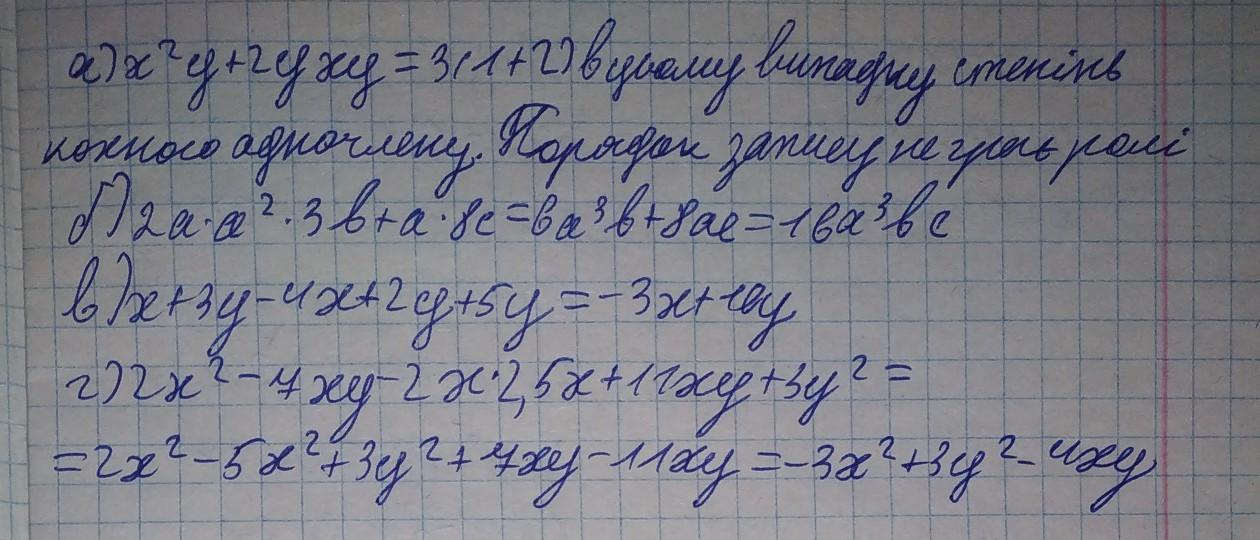 а) x²y+2yxy=3(1+2) в цьому випадку степінь
кожного одночлену. Порядок запису не грає ролі
б) 2a·a²·3b+a·8c=6a³b+8ac=16a³bc
в) x+3y-4x+2y+5y=-3x+10y
г) 2x²-7xy-2x·2,5x+11xy+3y²=
=2x²-5x²+3y²+7xy-11xy=-3x²+3y²-4xy